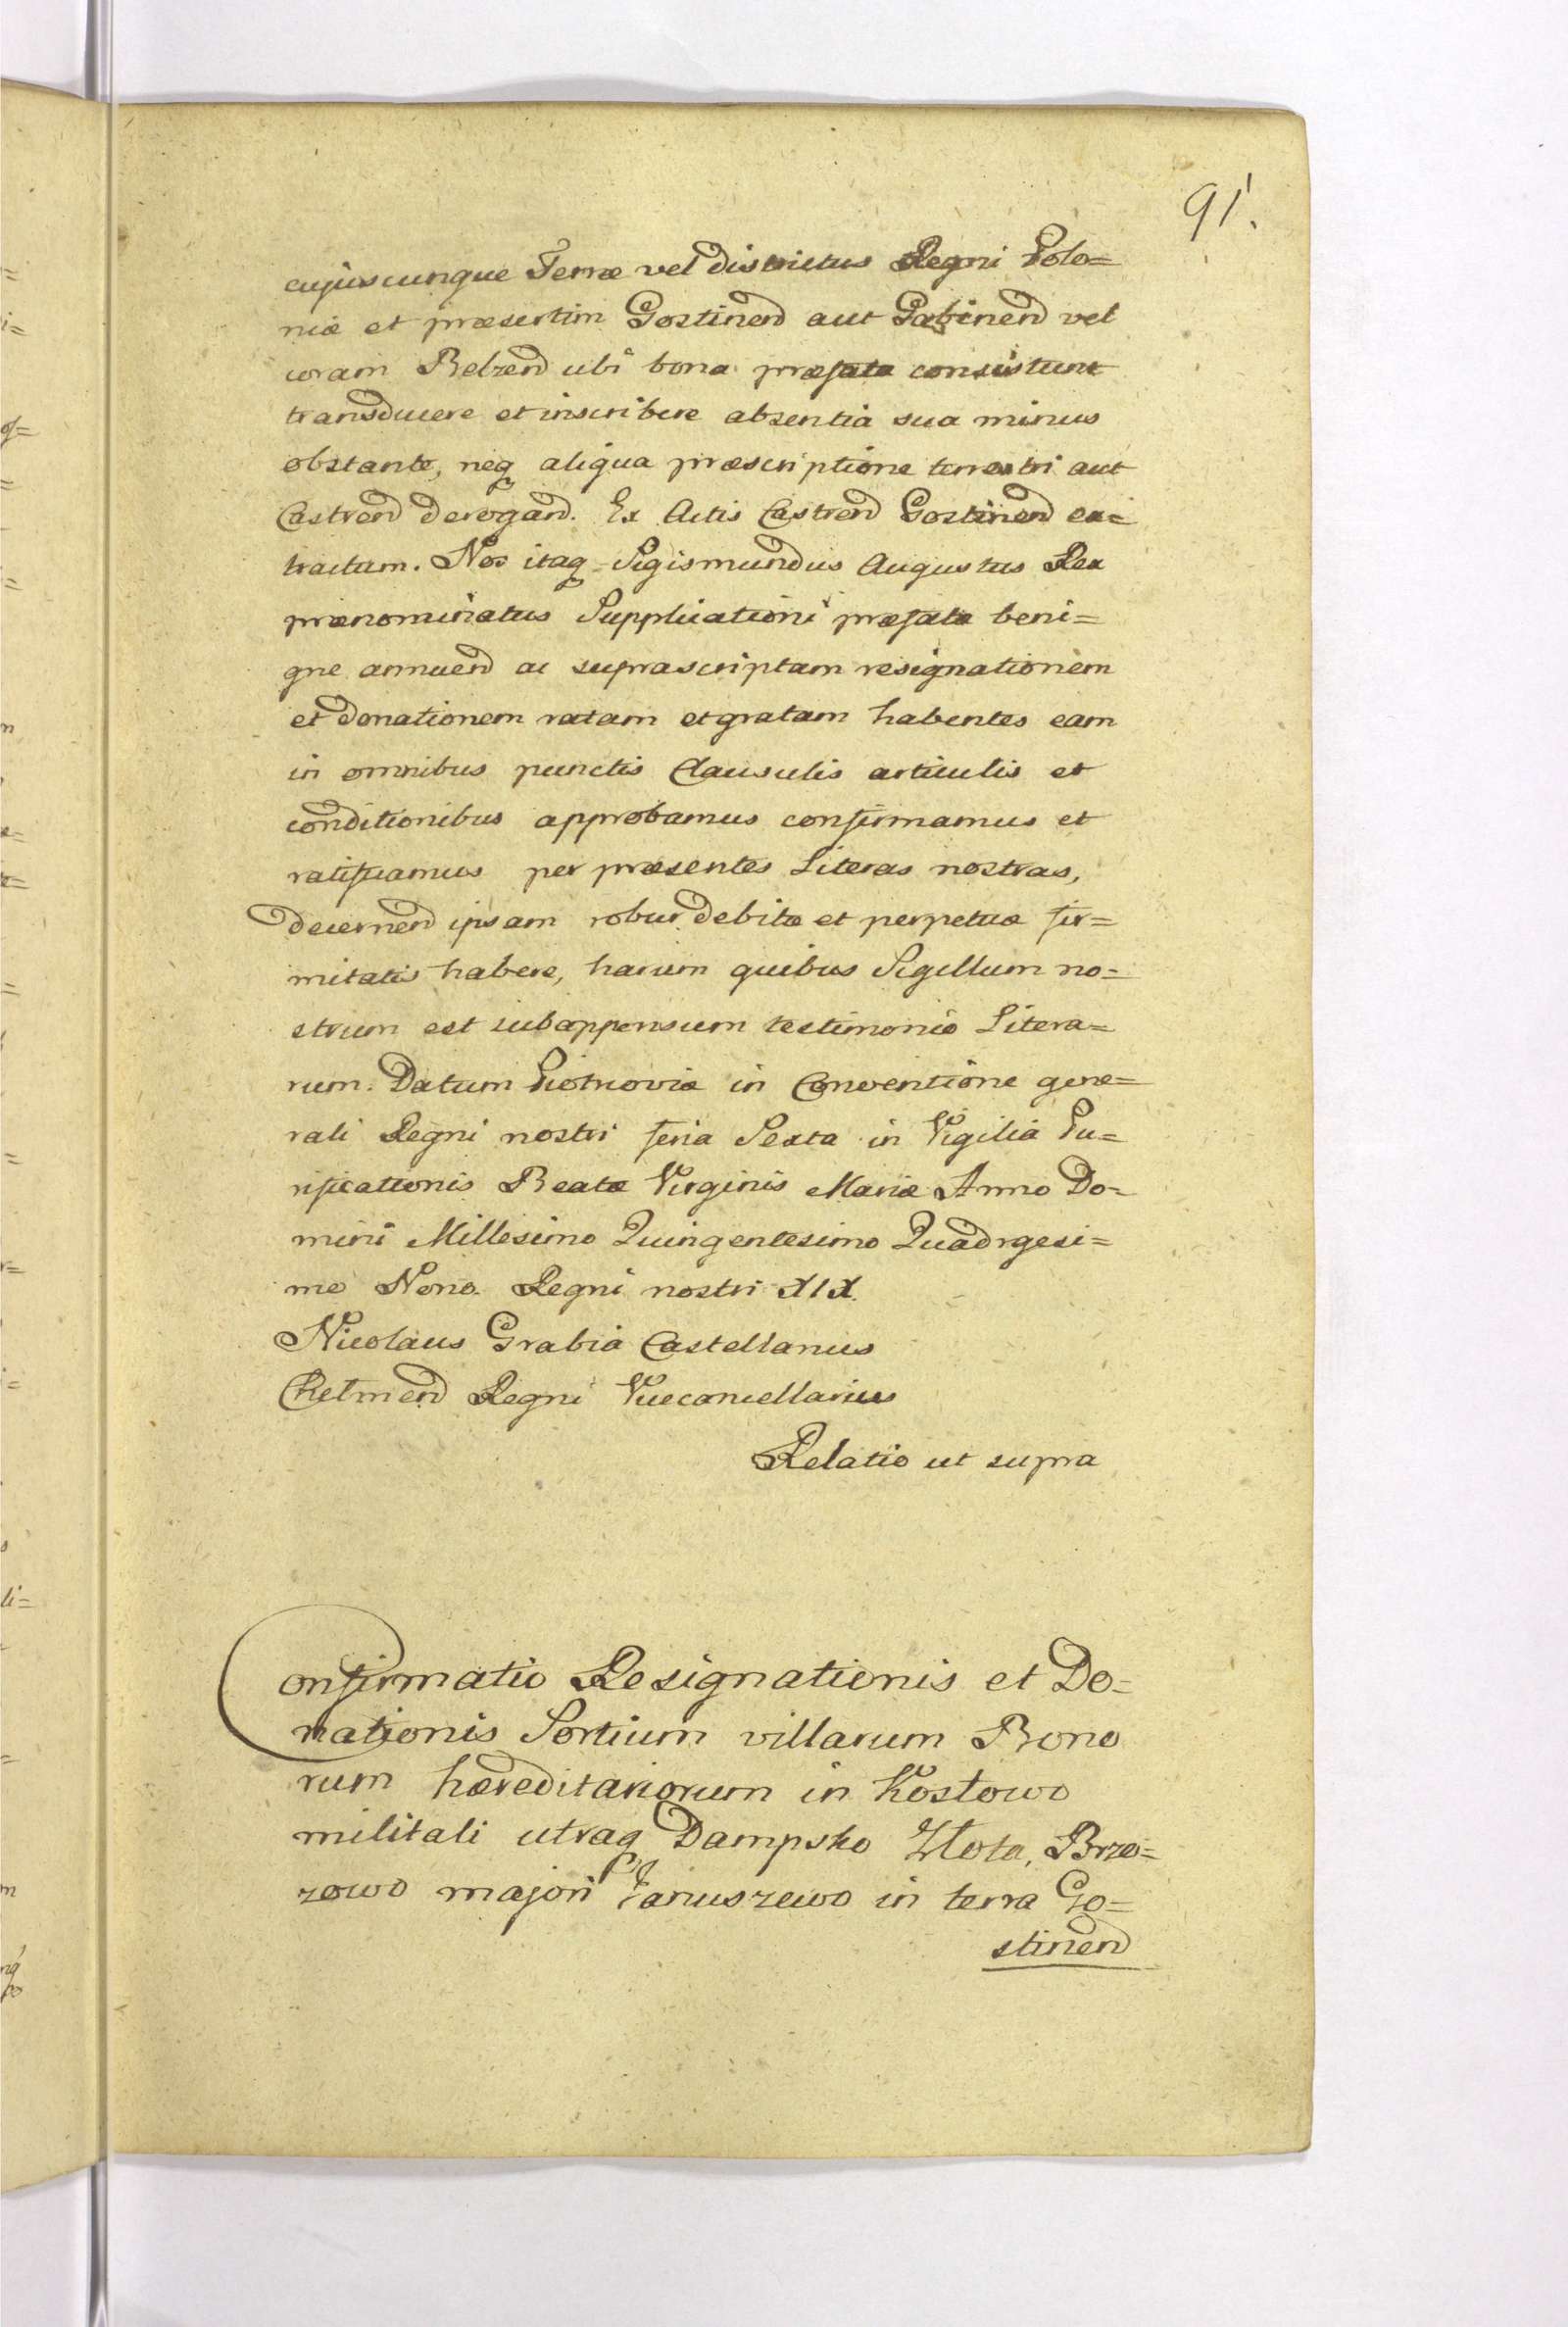 91.
cujuscunque Terræ vel districtus Regni Polo=
niæ et præsertim Gostinen aut Gabinen vel
coram Belzen ubi bona præfata consistunt
transducere et inscribere absentia sua minus
obstante, neq aliqua præscriptione terrestri aut
Castren derogan. Ex Actis Castren Gostinen ex=
tractum. Nos itaq Sigismundus Augustus Rex
prænominatus Supplicationi præfatæ beni=
gne annuen ac suprascriptam resignationem
et donationem ratam et gratam habentes eam
in omnibus punctis Clausulis articulis et
conditionibus approbamus confirmamus et
ratificamus per præsentes Literas nostras,
decernen ipsam robur debitæ et perpetuæ fir=
mitatis habere, harum quibus Sigillum no=
strum est subappensum testimonio Litera=
rum. Datum Piotrcoviæ in Conventione gene=
rali Regni nostri feria Sexta in Vigilia Pu=
rificationis Beatæ Virginis Mariæ Anno Do=
mini Millesimo Quingentesimo Quadrgesi=
mo Nono. Regni nostri XIX.
Nicolaus Grabia Castellanus
Chełmen Regni Vicecancellarius
Relatio ut supra
Confirmatio Resignationis et Do=
nationis Sortium villarum Bono
rum hæreditariorum in Kosłowo
militali utraq Dampsko Złota, Brzo=
zowo majori Januszewo in terra Go=
stinen